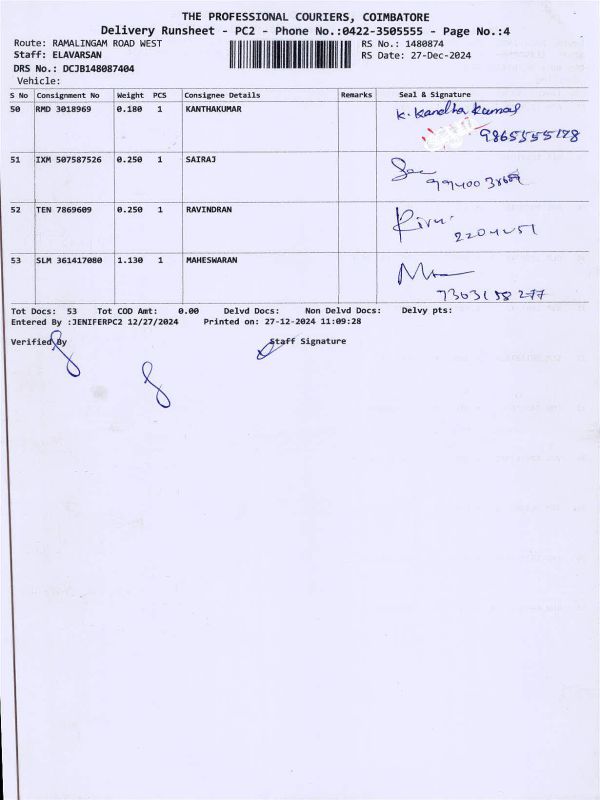 THE PROFESSIONAL COURIERS, COIMBATORE
Delivery Runsheet - PC2 - Phone No.:0422-3505555 - Page No.:4
Route: RAMALINGAM ROAD WEST RS No.: 1480874
Staff: ELAVARSAN RS Date: 27-Dec-2024
DRS No.: DCJB148087404
Vehicle:
S No Consignment No Weight PCS Consignee Details Remarks Seal & Signature
50 RMD 3018969 0.180 1 KANTHAKUMAR K. Kandha Kumar
9865555178
51 IXM 507587526 0.250 1 SAIRAJ
52 TEN 7869609 0.250 1 RAVINDRAN
53 SLM 361417080 1.130 1 MAHESWARAN
7363158277
Tot Docs: 53 Tot COD Amt: 0.00 Delvd Docs: Non Delvd Docs: Delvy pts:
Entered By :JENIFERPC2 12/27/2024 Printed on: 27-12-2024 11:09:28
Verified By Staff Signature